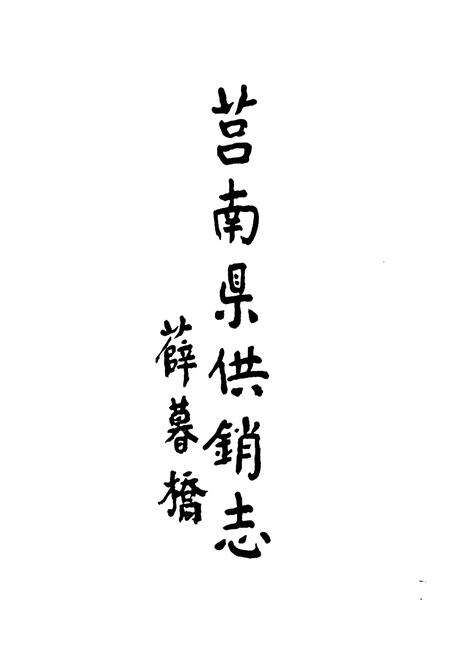 莒南県供銷志
薛暮橋